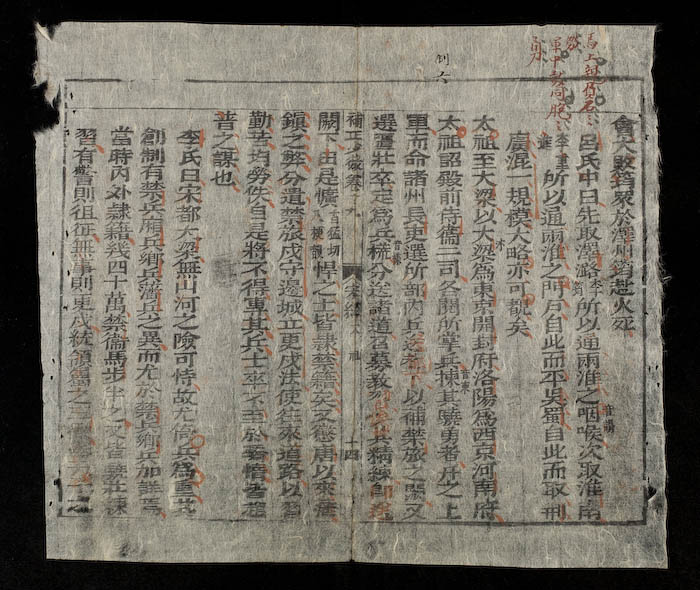 會大敗筠衆於澤州筠赴火死
呂氏中曰先取澤潞李筠所以通兩淮之咽喉次取淮南
李重進所以通兩淮之門戶自此而平吳蜀自此而取荊
廣混一規模大略亦可觀矣
太祖至大梁以大梁爲東京開封府洛陽爲西京河南府
太祖詔殿前侍衞二司各閱所掌兵揀其驍勇者升之上
軍而命諸州長吏選所部內兵送都下以補禁旅之闕又
選彊壯卒定爲兵樣分送諸道召募敎習俟其精練卽送
十四
闕下由是獷古猛切又梗韻悍之士皆隸禁籍矣又懲唐以來藩
鎭之弊分遣禁旅戍守邊城立更戍法使往來道路以習
勤苦均勞佚自是將不得專其兵士卒不至於驕惰皆趙
普之謀也
李氏曰宋都大梁無山河之險可恃故尤倚兵爲重其
創制有禁兵廂兵鄕兵蕃兵之異而尤於禁兵鄕兵加詳焉
當時內外隸籍幾四十萬禁衞馬步半之又皆彊壯揀
習有警則徂征無事則更戍統領